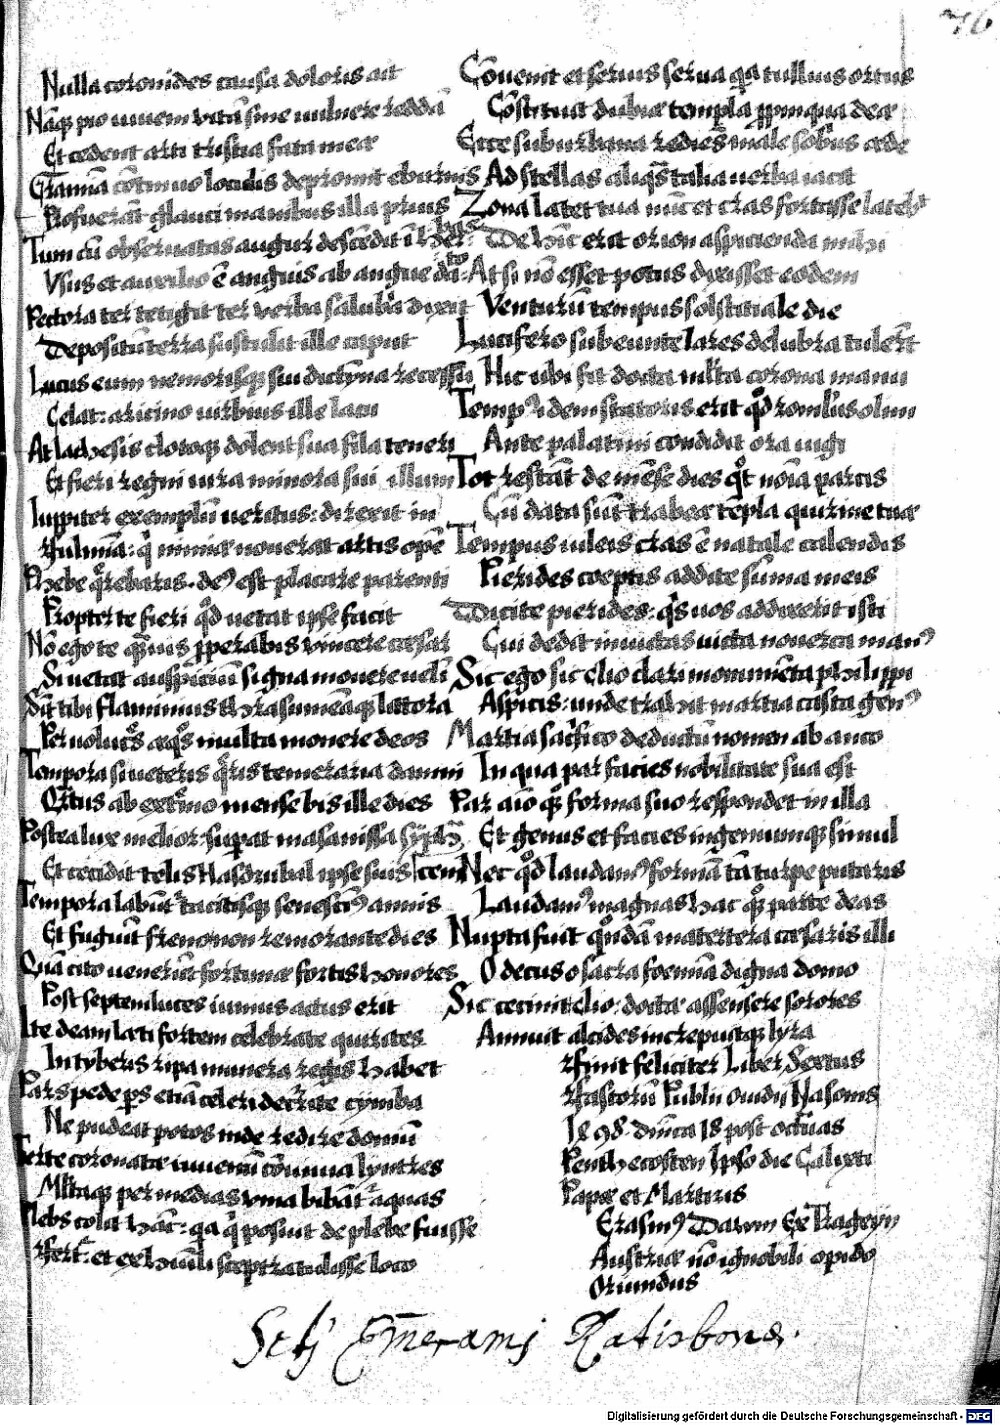 76
Nulla coronides causa doloris ait
Nãq; pio iuuem vitã sine uulnere reddã
Et cedent arti tristia fata meæ
Gramĩa cõtinuo loculis depromit eburnis
Profuerãt glauci manibus illa prius
Tum cũ obseruatas augur descẽdit ĩ herbas
Vsus et auxilio ẽ anguis ab angue dato
Pectora ter tetigit ter verba salubria dixit
Depositũ terra sustulit ille caput
Lucus eum nemorisq; sui dictynna recessu
Celat: aricino uirbius ille lacu
At lachesis clotoq; dolent sua fila teneri
Et fieri regni iura minora sui illum
Iuppiter exemplũ ueritus: direxit in
fulmina: q̃ nimiæ nouerat artis opẽ
Phebe q̃rebaris. deꝰ est placare parenti
Propter te fieri qđ uetat ipse facit
Nõ ego te q̃uis pperabis vincere cæsar
Si uetat auspiciũ signa mouere ueli
Sĩt tibi flaminius thrasumẽaq; littora
Per uolucrẽs æqs̃ multa monere deos
Tempora si ueteris q̃ris temeraria damni
Ortus ab extr̃mo mense bis ille dies
Postea lux melior: supat masanissa syphã
Et cecidit telis Hasdrubal ipse suis
Tempora labũt tacitisq; senescimꝰ annis
Et fugiũt freno non remorante dies
Quã cito uenerũt fortunæ fortis honores
Post septem luces iunius actus erit
Ite deam læti fortem celebrate quirites
In tyberis ripa munera regis habet
Pars pede ps etiã celeri decurrite cymba
Ne pudeat potos inde redire domũ
Ferte coronatæ iuuenũ cõuiuia lyntres
Mltaq; per medias vina bibãt aquas
Plebs colit hãc: qa q̃ posuit de plebe fuisse
fert: et ex humili sceptra tulisse loco
Cõuenit et seruis serua qa tullius ortus
Cõstituit dubiæ templa ppinqua deæ
Ecce suburbana rediẽs male sobrius æde
Ad stellas aliqs̃ talia uerba iacit
Zona latet tua nũc et cras fortasse latebit
De hĩc erit orion aspicienda mihi
At si nõ esset potus dixisset eodem
Venturũ tempus solstitiale die
Lucifero subeunte lares delubra tulerũt
Hic ubi fit docta mlta corona manu
Tempꝰ idem statoris erit qđ romulus olim
Ante palatini condidit ora iugi
Tot restãt de mẽse dies qt noĩa parcis
Cũ data sũt trabeæ tẽpla quirine tuæ
Tempus iuleis cras ẽ natale calendis
Pierides coeptis addite sũma meis
Dicite pierides: qs̃ uos addixerit isti
Cui dedit inuictas uicta nouerca manꝰ
Sic ego sic clio clari monumẽta philippi
Aspicis: unde trahit martia casta genꝰ
Martia sacrifico deductũ nomen ab anco
In qua par facies nobilitate sua est
Par aĩo q; forma suo respondet in illa
Et genus et facies ingeniumq; simul
Nec qđ laudamꝰ formã tã turpe putaris
Laudamꝰ magnas hac q; parte deas
Nupta fuit quõdã matertera cæsaris illi
O decus o sacra foemĩa digna domo
Sic cecinit clio: doctæ assensere sorores
Annuit alcides increpuitq; lyra
finit feliciter Liber Sextus
fastorũ Publii Ouidii Nasonis
dmĩca 18 post octauas
Penthecosten Ipso die Calixti
Papæ et Martiris
Erasmꝰ Ex
Austriæ nõ ignobili opido
Oriundus
Scti Emerami Ratisbonæ.
Digitalisierung gefördert durch die Deutsche Forschungsgemeinschaft - DFG